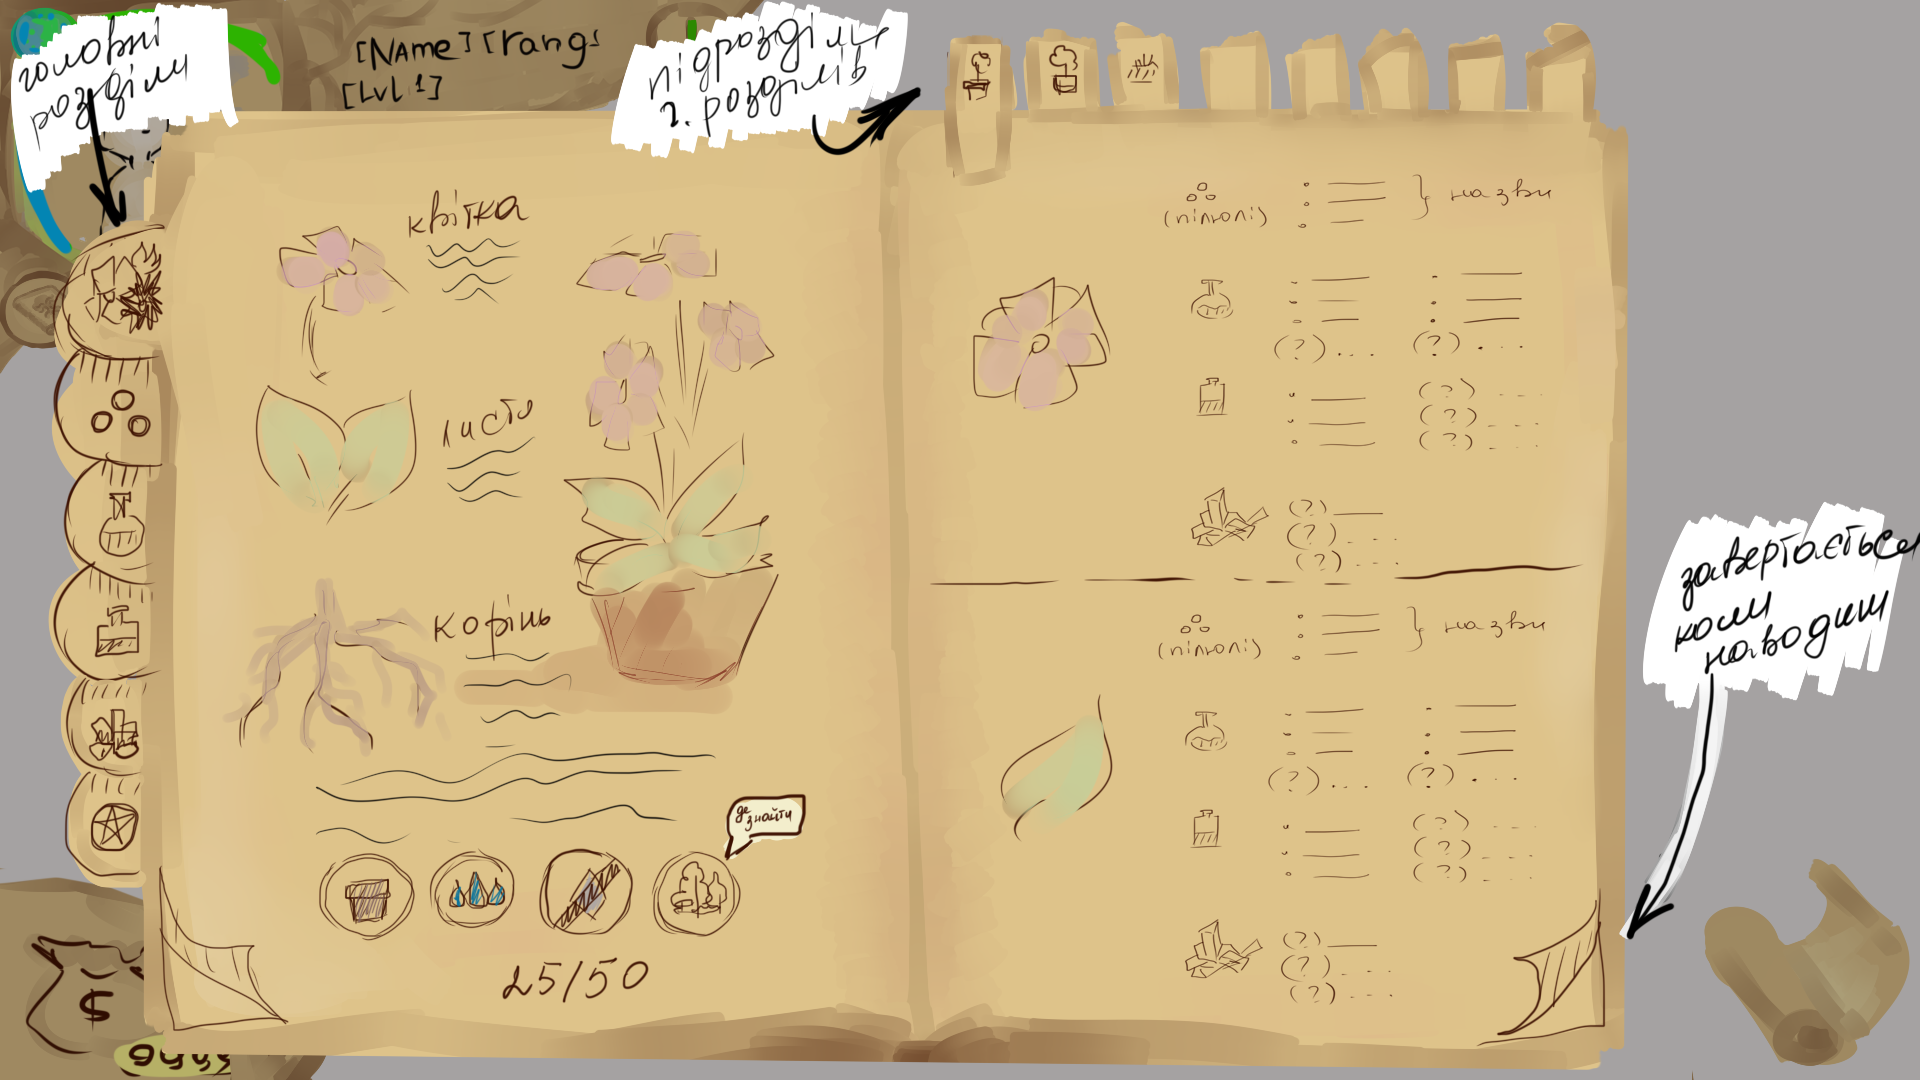 головні
розділи
[Name] [rang]
[Lvl 1]
підрозділи
г. розділів
квітка
листя
корінь
де
знайти
25/50
(пілюлі)
} назви
(?)
(?)
(?)
(?)
(?)
(?)
(?)
(?)
(пілюлі)
} назви
(?)
(?)
(?)
(?)
(?)
(?)
(?)
(?)
завертається
коли
наводиш
$